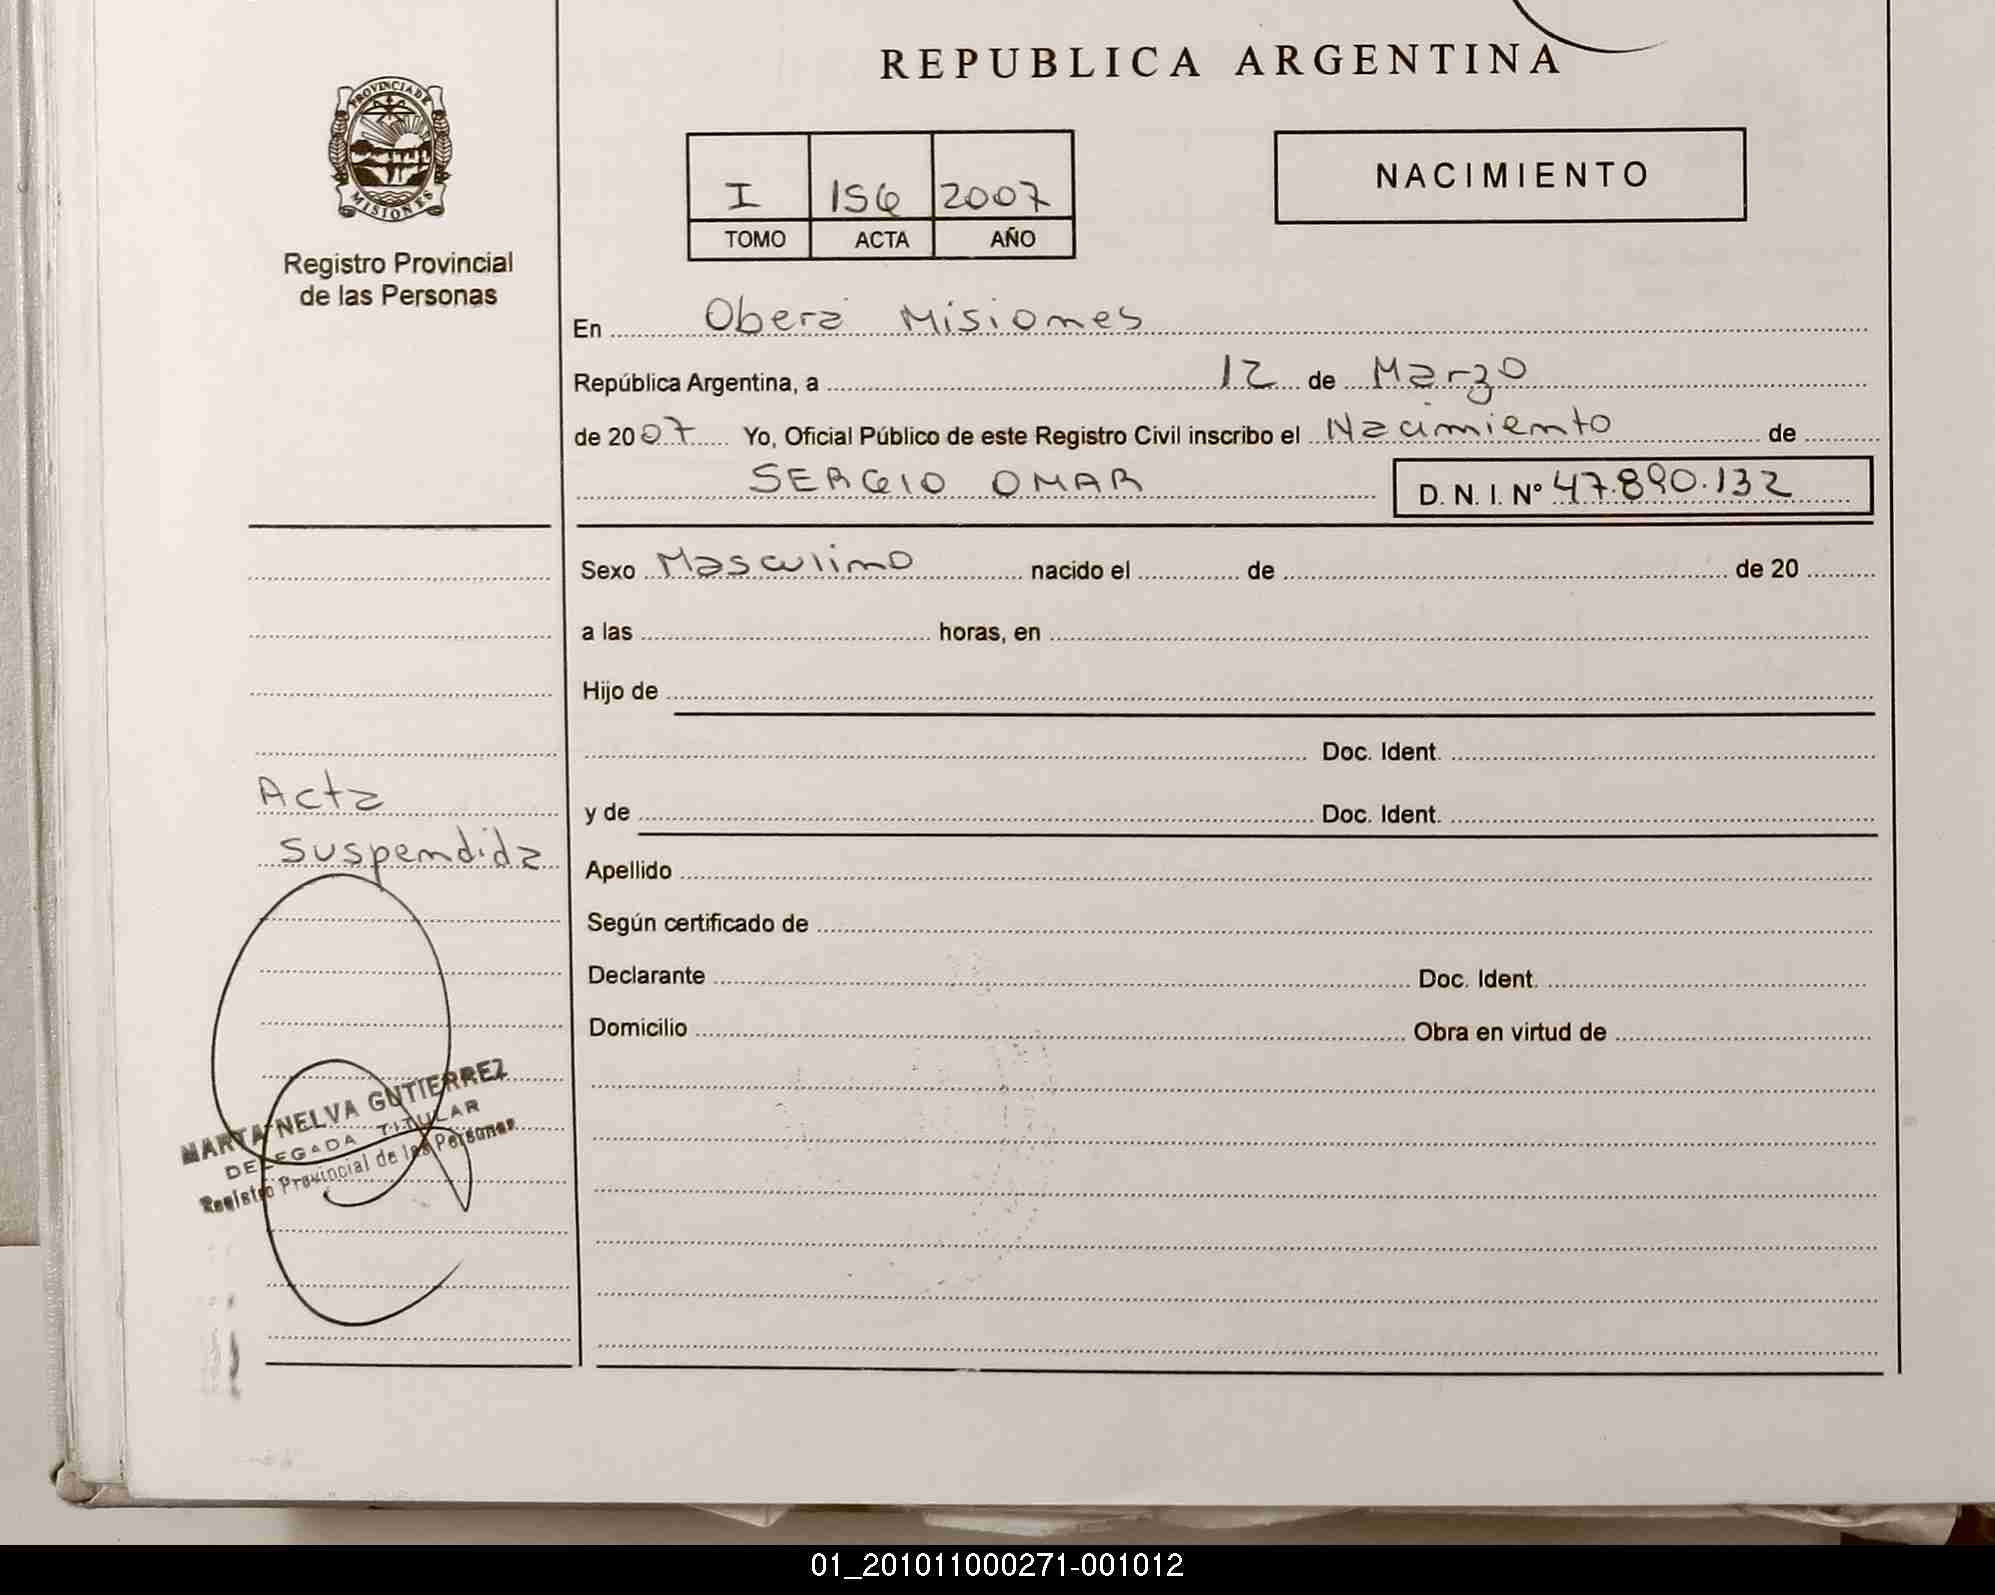 REPUBLICA ARGENTINA
PROVINCIA DE
MISIONES
Registro Provincial
de las Personas
I 156 2007
TOMO ACTA AÑO
NACIMIENTO
En Oberá Misiones
República Argentina, a 12 de Marzo
de 2007 Yo, Oficial Público de este Registro Civil inscribo el Nacimiento de
SERGIO OMAR D. N. I. Nº 47.890.132
Sexo Masculino nacido el de de 20
a las horas, en
Hijo de
Doc. Ident.
y de Doc. Ident.
Apellido
Según certificado de
Declarante Doc. Ident.
Domicilio Obra en virtud de
Acta
suspendida
MARTA NELVA GUTIERREZ
DELEGADA TITULAR
Registro Provincial de las Personas
01_201011000271-001012